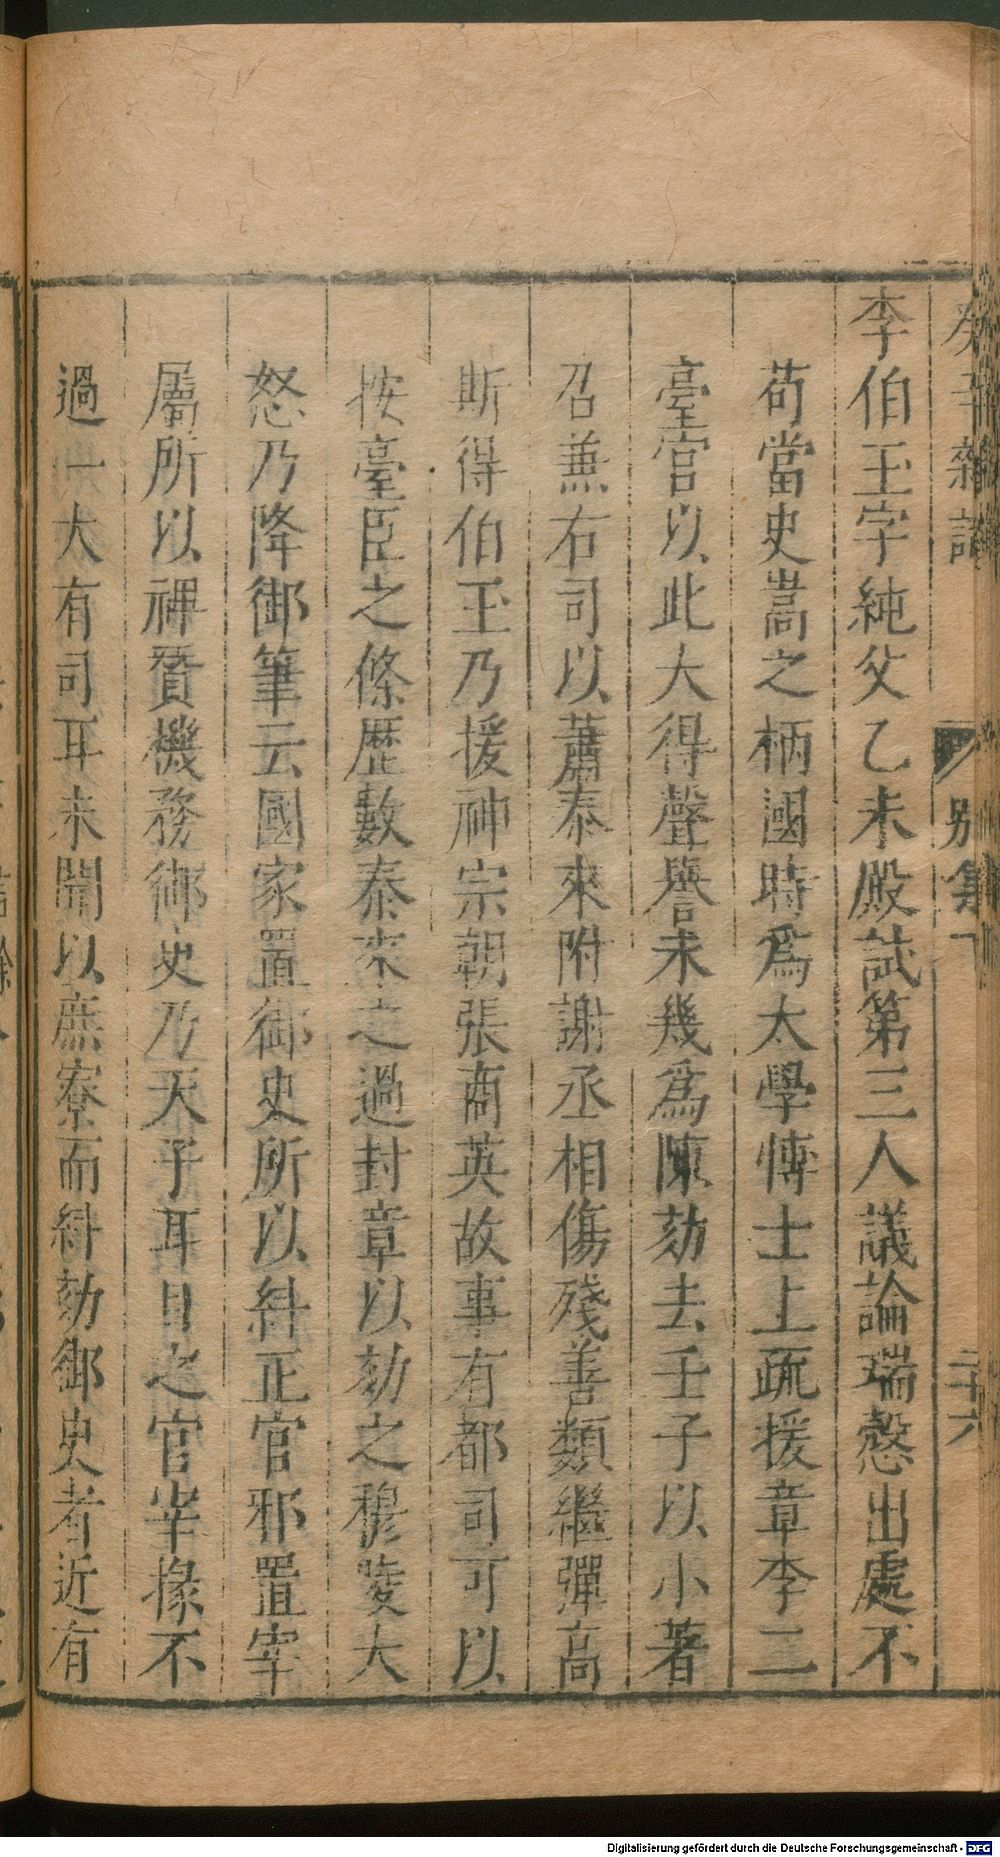 癸辛雜識 別集下 二十六
李伯玉字純父乙未殿試第三人議論瑞慤出處不
苟當史嵩之柄國時爲太學博士上疏援章李二
臺官以此大得聲譽未幾爲陳劾去壬子以小著
召兼右司以蕭泰來附謝丞相傷殘善類繼彈高
斯得伯玉乃援神宗朝張商英故事有都司可以
按臺臣之條歷數泰來之過封章以劾之穆陵大
怒乃降御筆云國家置御史所以糾正官邪置宰
屬所以裨贊機務御史乃天子耳目之官宰掾不
過一大有司耳未聞以庶寮而糾劾御史者近有
Digitalisierung gefördert durch die Deutsche Forschungsgemeinschaft - DFG